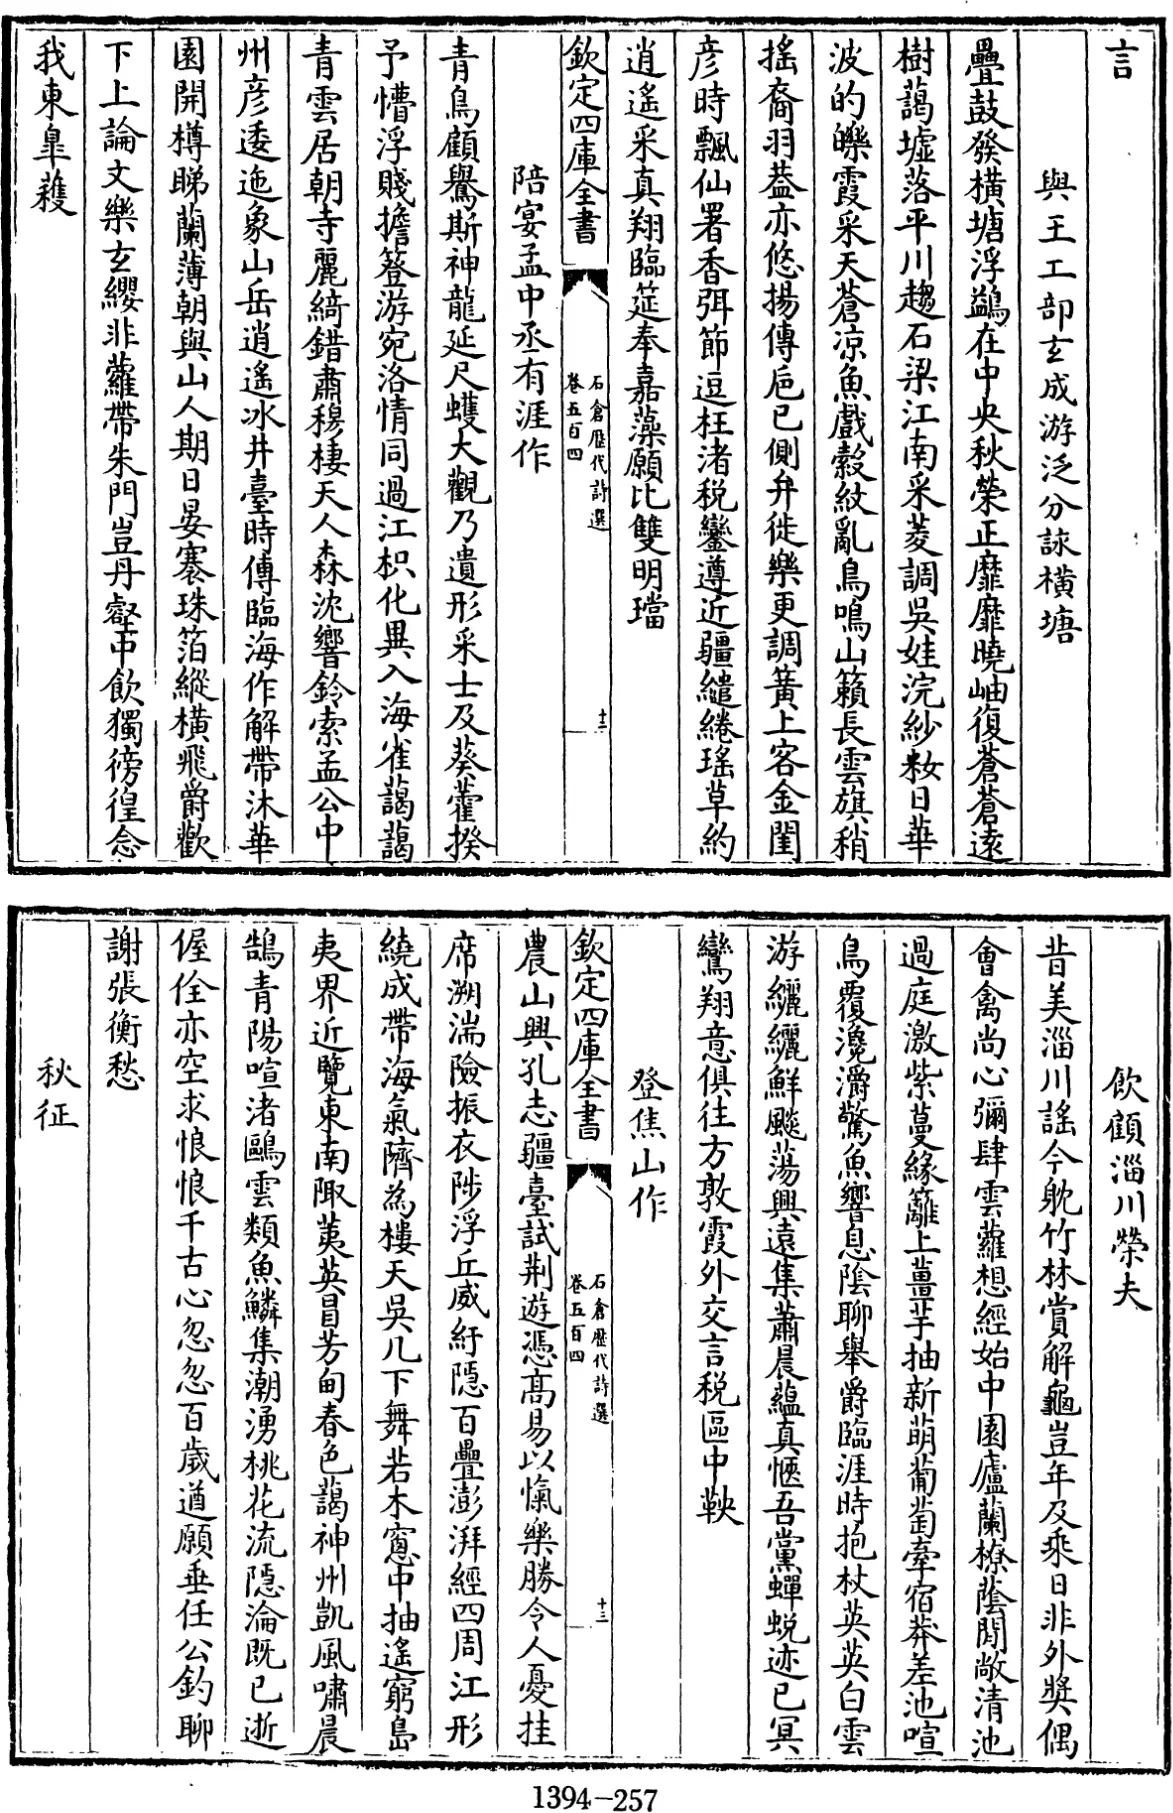 言
與王工部玄成游泛分詠橫塘
疊鼓發橫塘浮鷁在中央秋榮正靡靡曉岫復蒼蒼遠
樹藹墟落平川趨石梁江南采菱調吳娃浣紗妝日華
波的皪霞采天蒼涼魚戲縠紋亂鳥鳴山籟長雲旗稍
搖裔羽葢亦悠揚傳卮已側弁徙樂更調簧上客金閨
彦時飄仙署香弭節逗枉渚税鑾遵近疆繾綣瑤草約
逍遙采真翔臨筵奉嘉藻願比雙明璫
欽定四庫全書
石倉歷代詩選
卷五百四
十二
陪宴孟中丞有涯作
青鳥顧鸞斯神龍延尺蠖大觀乃遺形采士及葵藿揆
予懵浮賤擔簦游宛洛情同過江枳化異入海雀藹藹
青雲居朝寺麗綺錯肅穆棲天人森沈響鈴索孟公中
州彦逶迤象山岳逍遙冰井臺時傳臨海作解帶沐華
園開樽睇蘭薄朝與山人期日晏褰珠箔縱橫飛爵歡
下上論文樂玄纓非蘿帶朱門豈丹壑中飲獨徬徨念
我東臯蠖
飲顧淄川榮夫
昔美淄川謡今躭竹林賞解龜豈年及乘日非外奬偶
會禽尚心彌肆雲蘿想經始中園廬蘭橑蔭閒敞清池
過庭激紫蔓緣籬上薑芋抽新萌葡萄牽宿莽差池喧
鳥覆瀺灂驚魚響息陰聊舉爵臨涯時抱杖英英白雲
游纚纚鮮飈蕩興遠集蕭晨藴真愜吾黨蟬蛻迹已冥
鸞翔意俱往方敦霞外交言税區中鞅
登焦山作
欽定四庫全書
石倉歷代詩選
卷五百四
十三
農山興孔志疆臺試荆遊憑髙易以愾樂勝令人憂挂
席溯湍險振衣陟浮丘威紆隱百疊澎湃經四周江形
繞成帶海氣隮為樓天吳几下舞若木窻中抽遙窮島
夷界近覽東南陬荑英冒芳甸春色藹神州凱風嘯晨
鵠青陽喧渚鷗雲類魚鱗集潮湧桃花流隱淪既已逝
偓佺亦空求悢悢千古心忽忽百歲遒願垂任公釣聊
謝張衡愁
秋征
1394-257